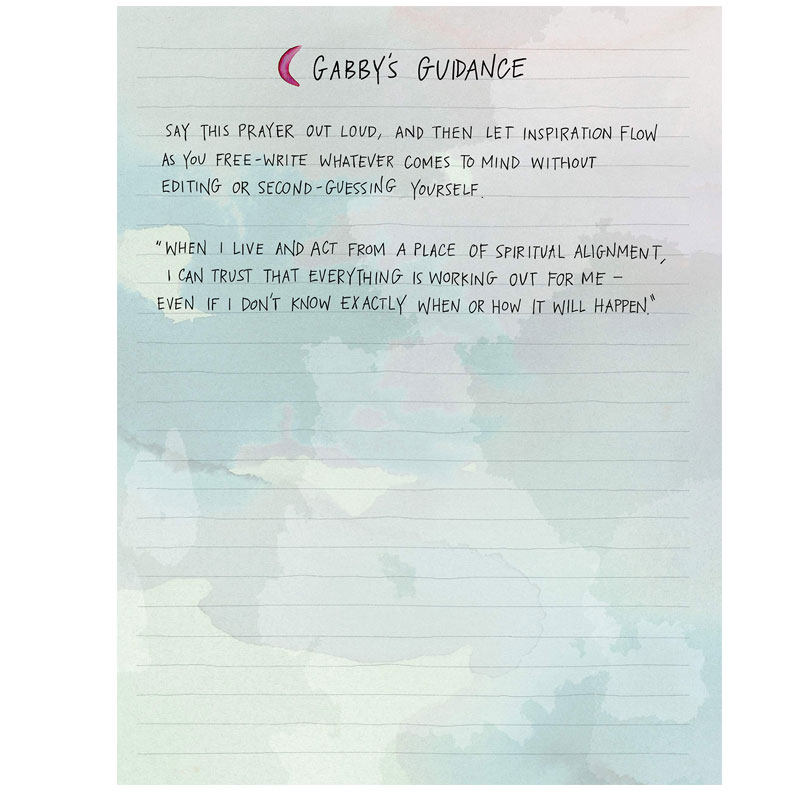 GABBY'S GUIDANCE
SAY THIS PRAYER OUT LOUD, AND THEN LET INSPIRATION FLOW
AS YOU FREE-WRITE WHATEVER COMES TO MIND WITHOUT
EDITING OR SECOND-GUESSING YOURSELF.
"WHEN I LIVE AND ACT FROM A PLACE OF SPIRITUAL ALIGNMENT,
I CAN TRUST THAT EVERYTHING IS WORKING OUT FOR ME –
EVEN IF I DON'T KNOW EXACTLY WHEN OR HOW IT WILL HAPPEN."